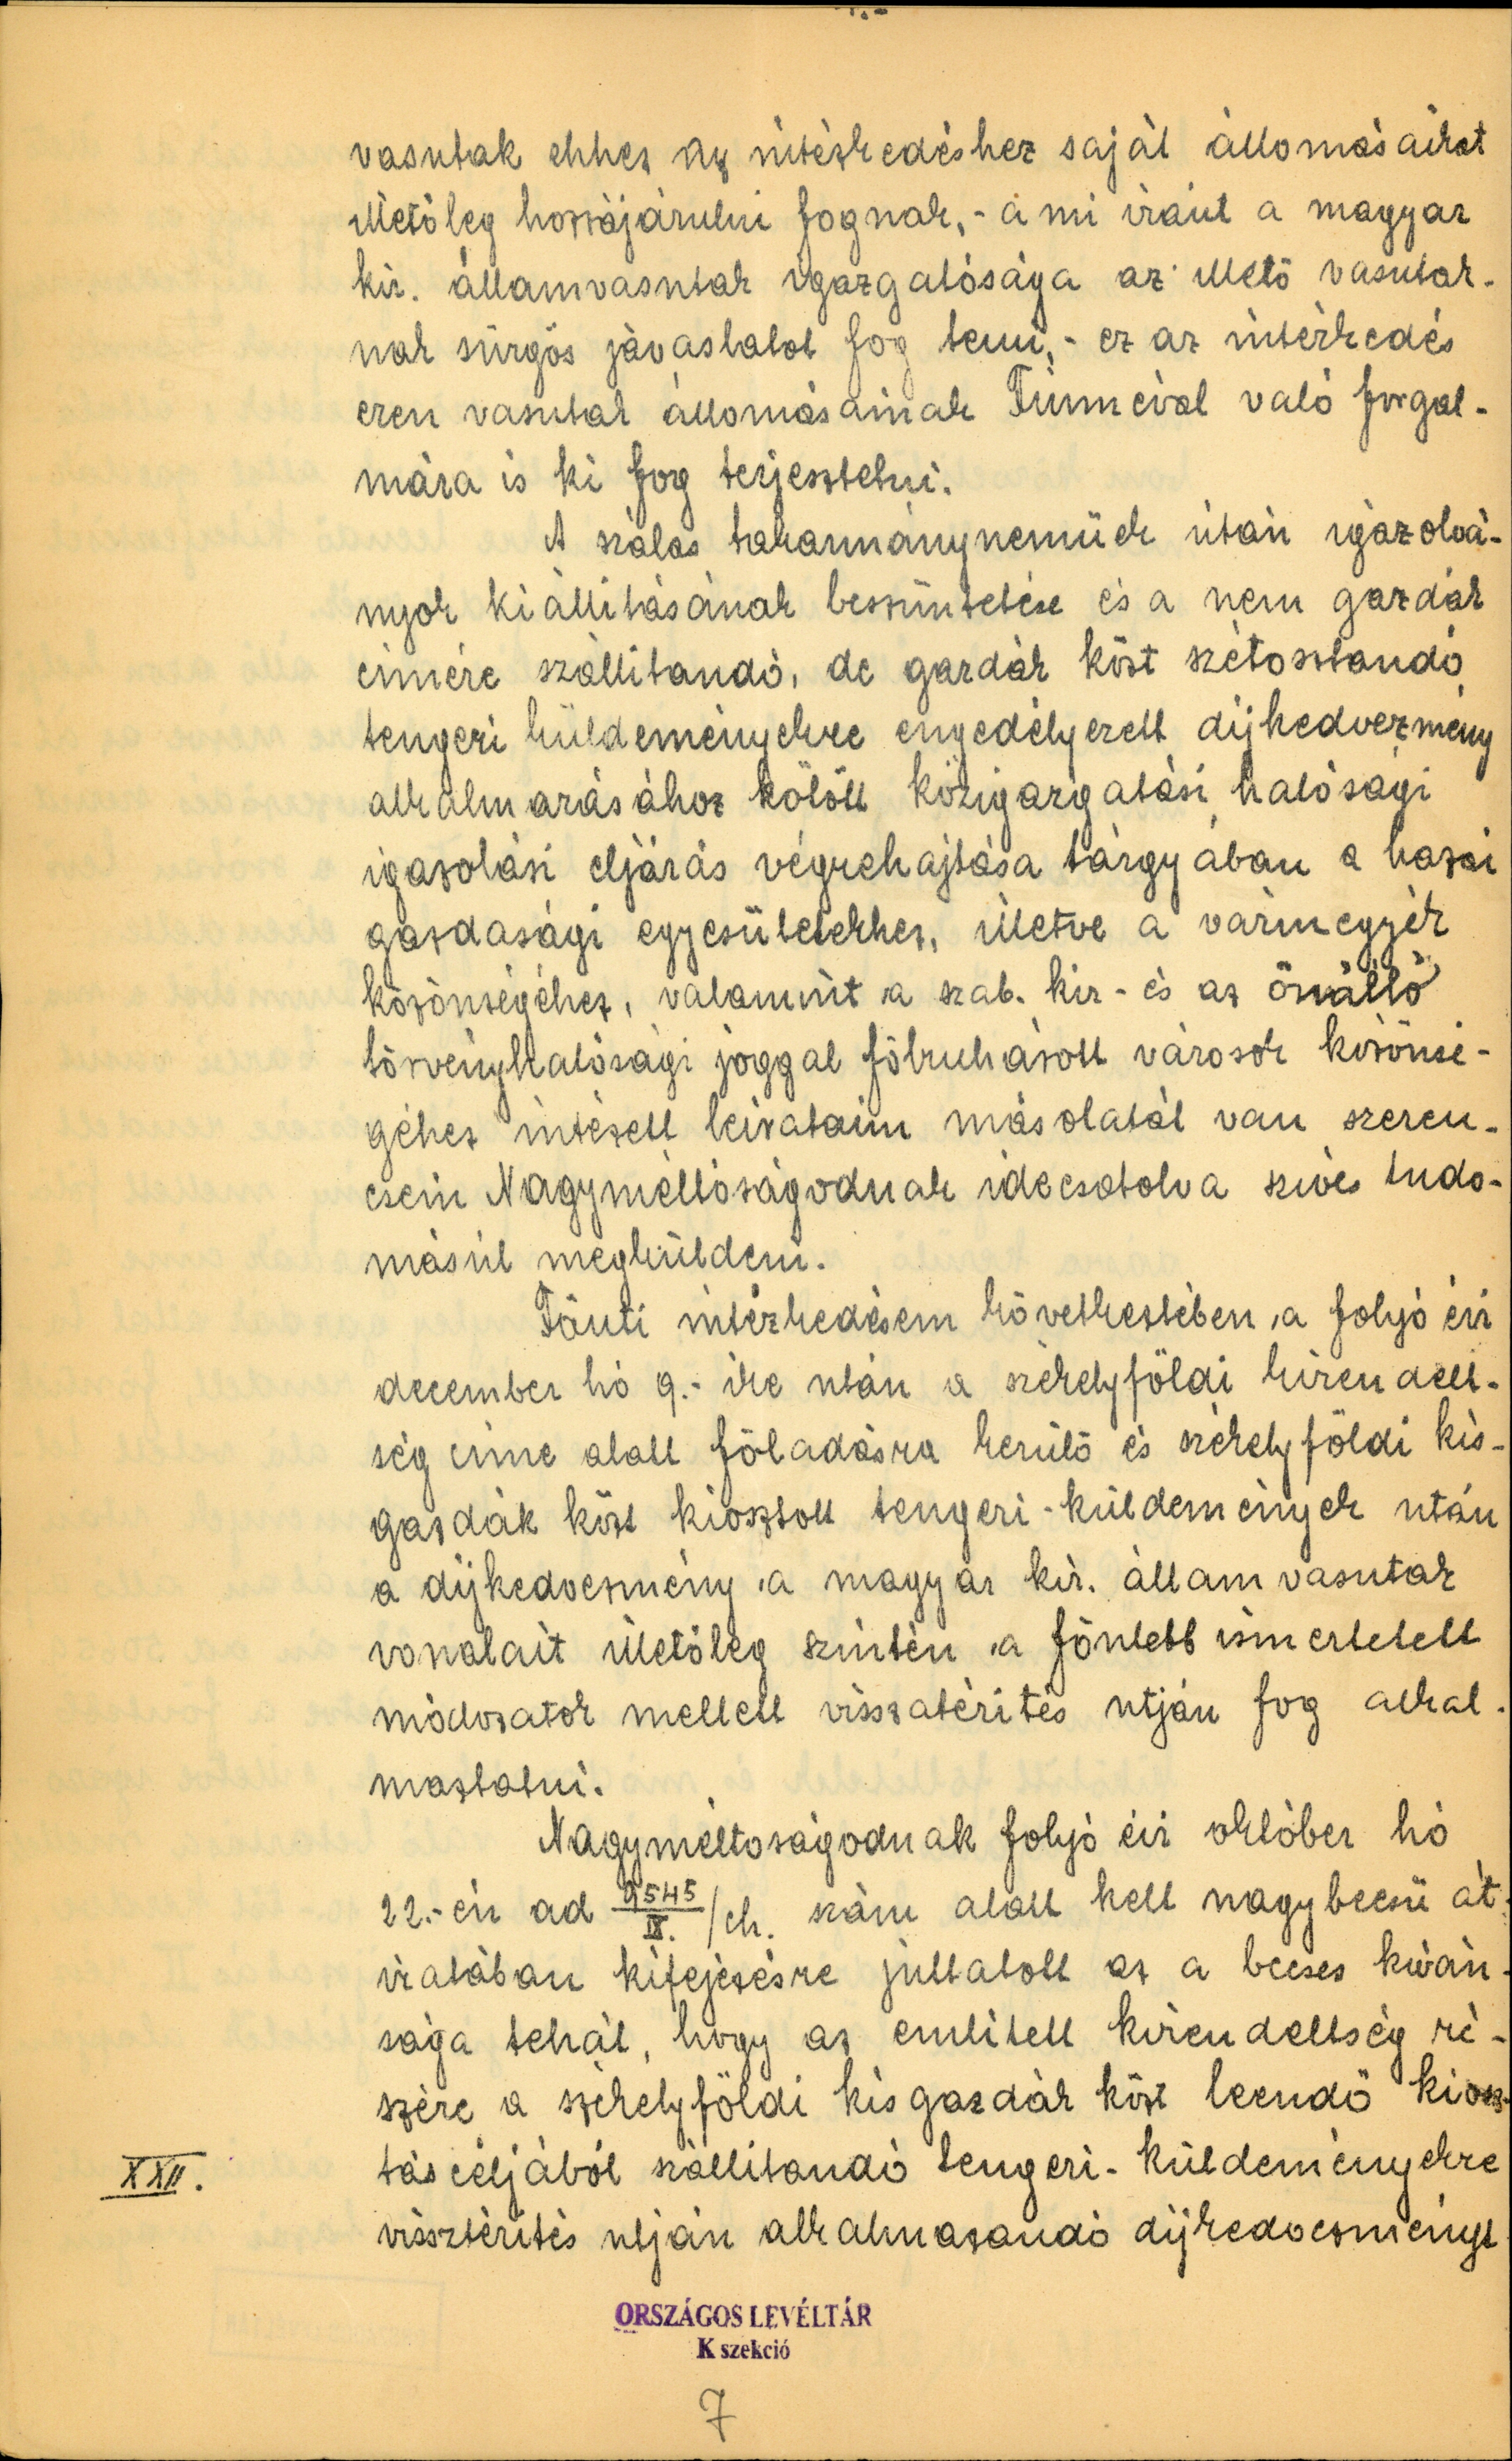 vasutak ehhez az intézkedéshez saját állomásaikat
illetőleg hozzájárulni fognak, - a mi iránt a magyar
kir. államvasutak igazgatósága az illető vasutak-
nak sürgős javaslatot fog tenni, - ez az intézkedés
ezen vasutak állomásainak Fiuméval való forgal-
mára is ki fog terjesztetni.
A szálas takarmányneműek után igazolvá-
nyok kiállításának beszüntetése és a nem gazdák
címére szállítandó, de gazdák közt szétosztandó
tengeri küldeményekre engedélyezett díjkedvezmény
alkalmazásához kötött közigazgatási hatósági
igazolási eljárás végrehajtása tárgyában a hazai
gazdasági egyesületekhez, illetve a vármegyék
közönségéhez, valamint a szab. kir. és az önálló
törvényhatósági joggal fölruházott városok közönsé-
géhez intézett leirataim másolatát van szeren-
csém Nagyméltóságodnak idecsatolva szíves tudo-
másul megküldeni.
Fönti intézkedésem következtében, a folyó évi
december hó 9.- ike után a székelyföldi kirendelt-
ség címe alatt föladásra kerülő és székelyföldi kis-
gazdák közt kiosztott tengeri-küldemények után
a díjkedvezmény a magyar kir. államvasutak
vonalait illetőleg szintén a föntebb ismertetett
módozatok mellett visszatérítés utján fog alkal-
maztatni.
Nagyméltoságodnak folyó évi október hó
22.-én ad 9545/IX. /ch. szám alatt kelt nagybecsü át-
iratában kifejezésre juttatott az a becses kíván-
sága tehát, hogy az említett kirendeltség ré-
szére a székelyföldi kisgazdák közt leendő kiosz-
tás céljából szállítandó tengeri-küldeményekre
vissztérítés utján alkalmazandó díjkedvezményt
XXII.
ORSZÁGOS LEVÉLTÁR
K szekció
7